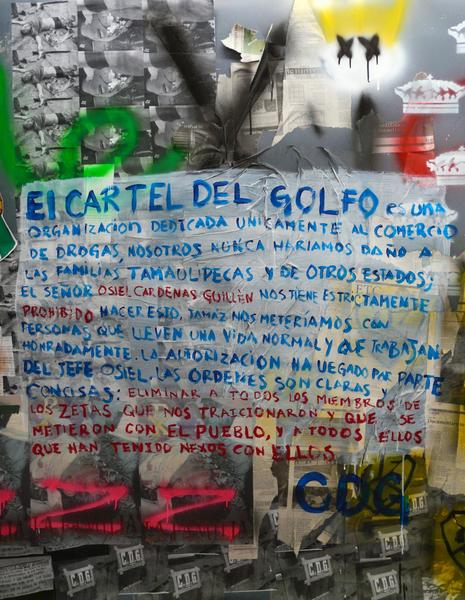 El CARTEL DEL GOLFO es UNA
ORGANIZACION DEDICADA UNICAMENTE AL COMERCIO
DE DROGAS, NOSOTROS NUNCA HARIAMOS DAÑO A
LAS FAMILIAS TAMAULIPECAS Y DE OTROS ESTADOS;
EL SEÑOR OSIEL CARDENAS GUILLEN NOS TIENE ESTRICTAMENTE
PROHIBIDO HACER ESTO, TAMAZ NOS METERIAMOS CON
PERSONAS QUE LLEVEN UNA VIDA NORMAL Y QUE TRABAJAN
HONRADAMENTE. LA AUTORIZACION HA LLEGADO PAR PARTE
DEL JEFE OSIEL. LAS ORDENES SON CLARAS Y
CONCISAS: ELIMINAR A TODOS LOS MIEMBROS DE
LOS ZETAS QUE NOS TRAICIONARON Y QUE SE
METIERON CON EL PUEBLO, Y A TODOS ELLOS
QUE HAN TENIDO NEXOS CON ELLOS
CDG
Z Z
C.D.G
C.D.G
C.D.G
C.D.G
C.D.G
C.D.G